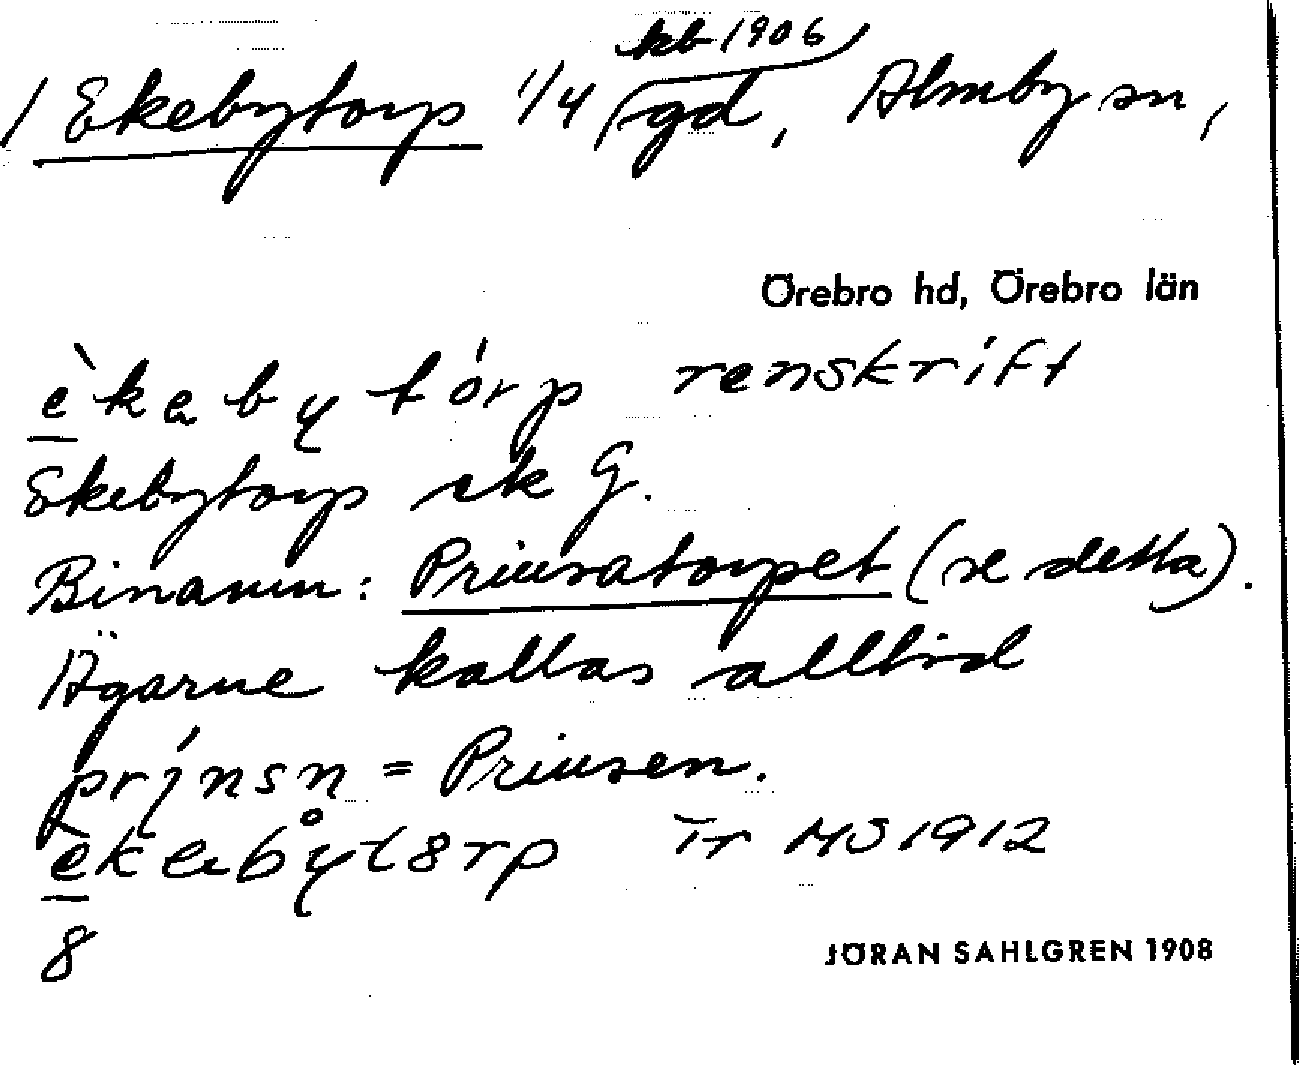 kb 1906
/ Ekebytorp 1/4 gd, Almby sn,
Örebro hd, Örebro län
èkebytórp renskrift
Ekebytorp ek G.
Binamn: Prinsatorpet (se detta).
Ägarne kallas alltid
prínsn = Prinsen.
èkebẙt8rp Tr MS 1912
8
JÖRAN SAHLGREN 1908